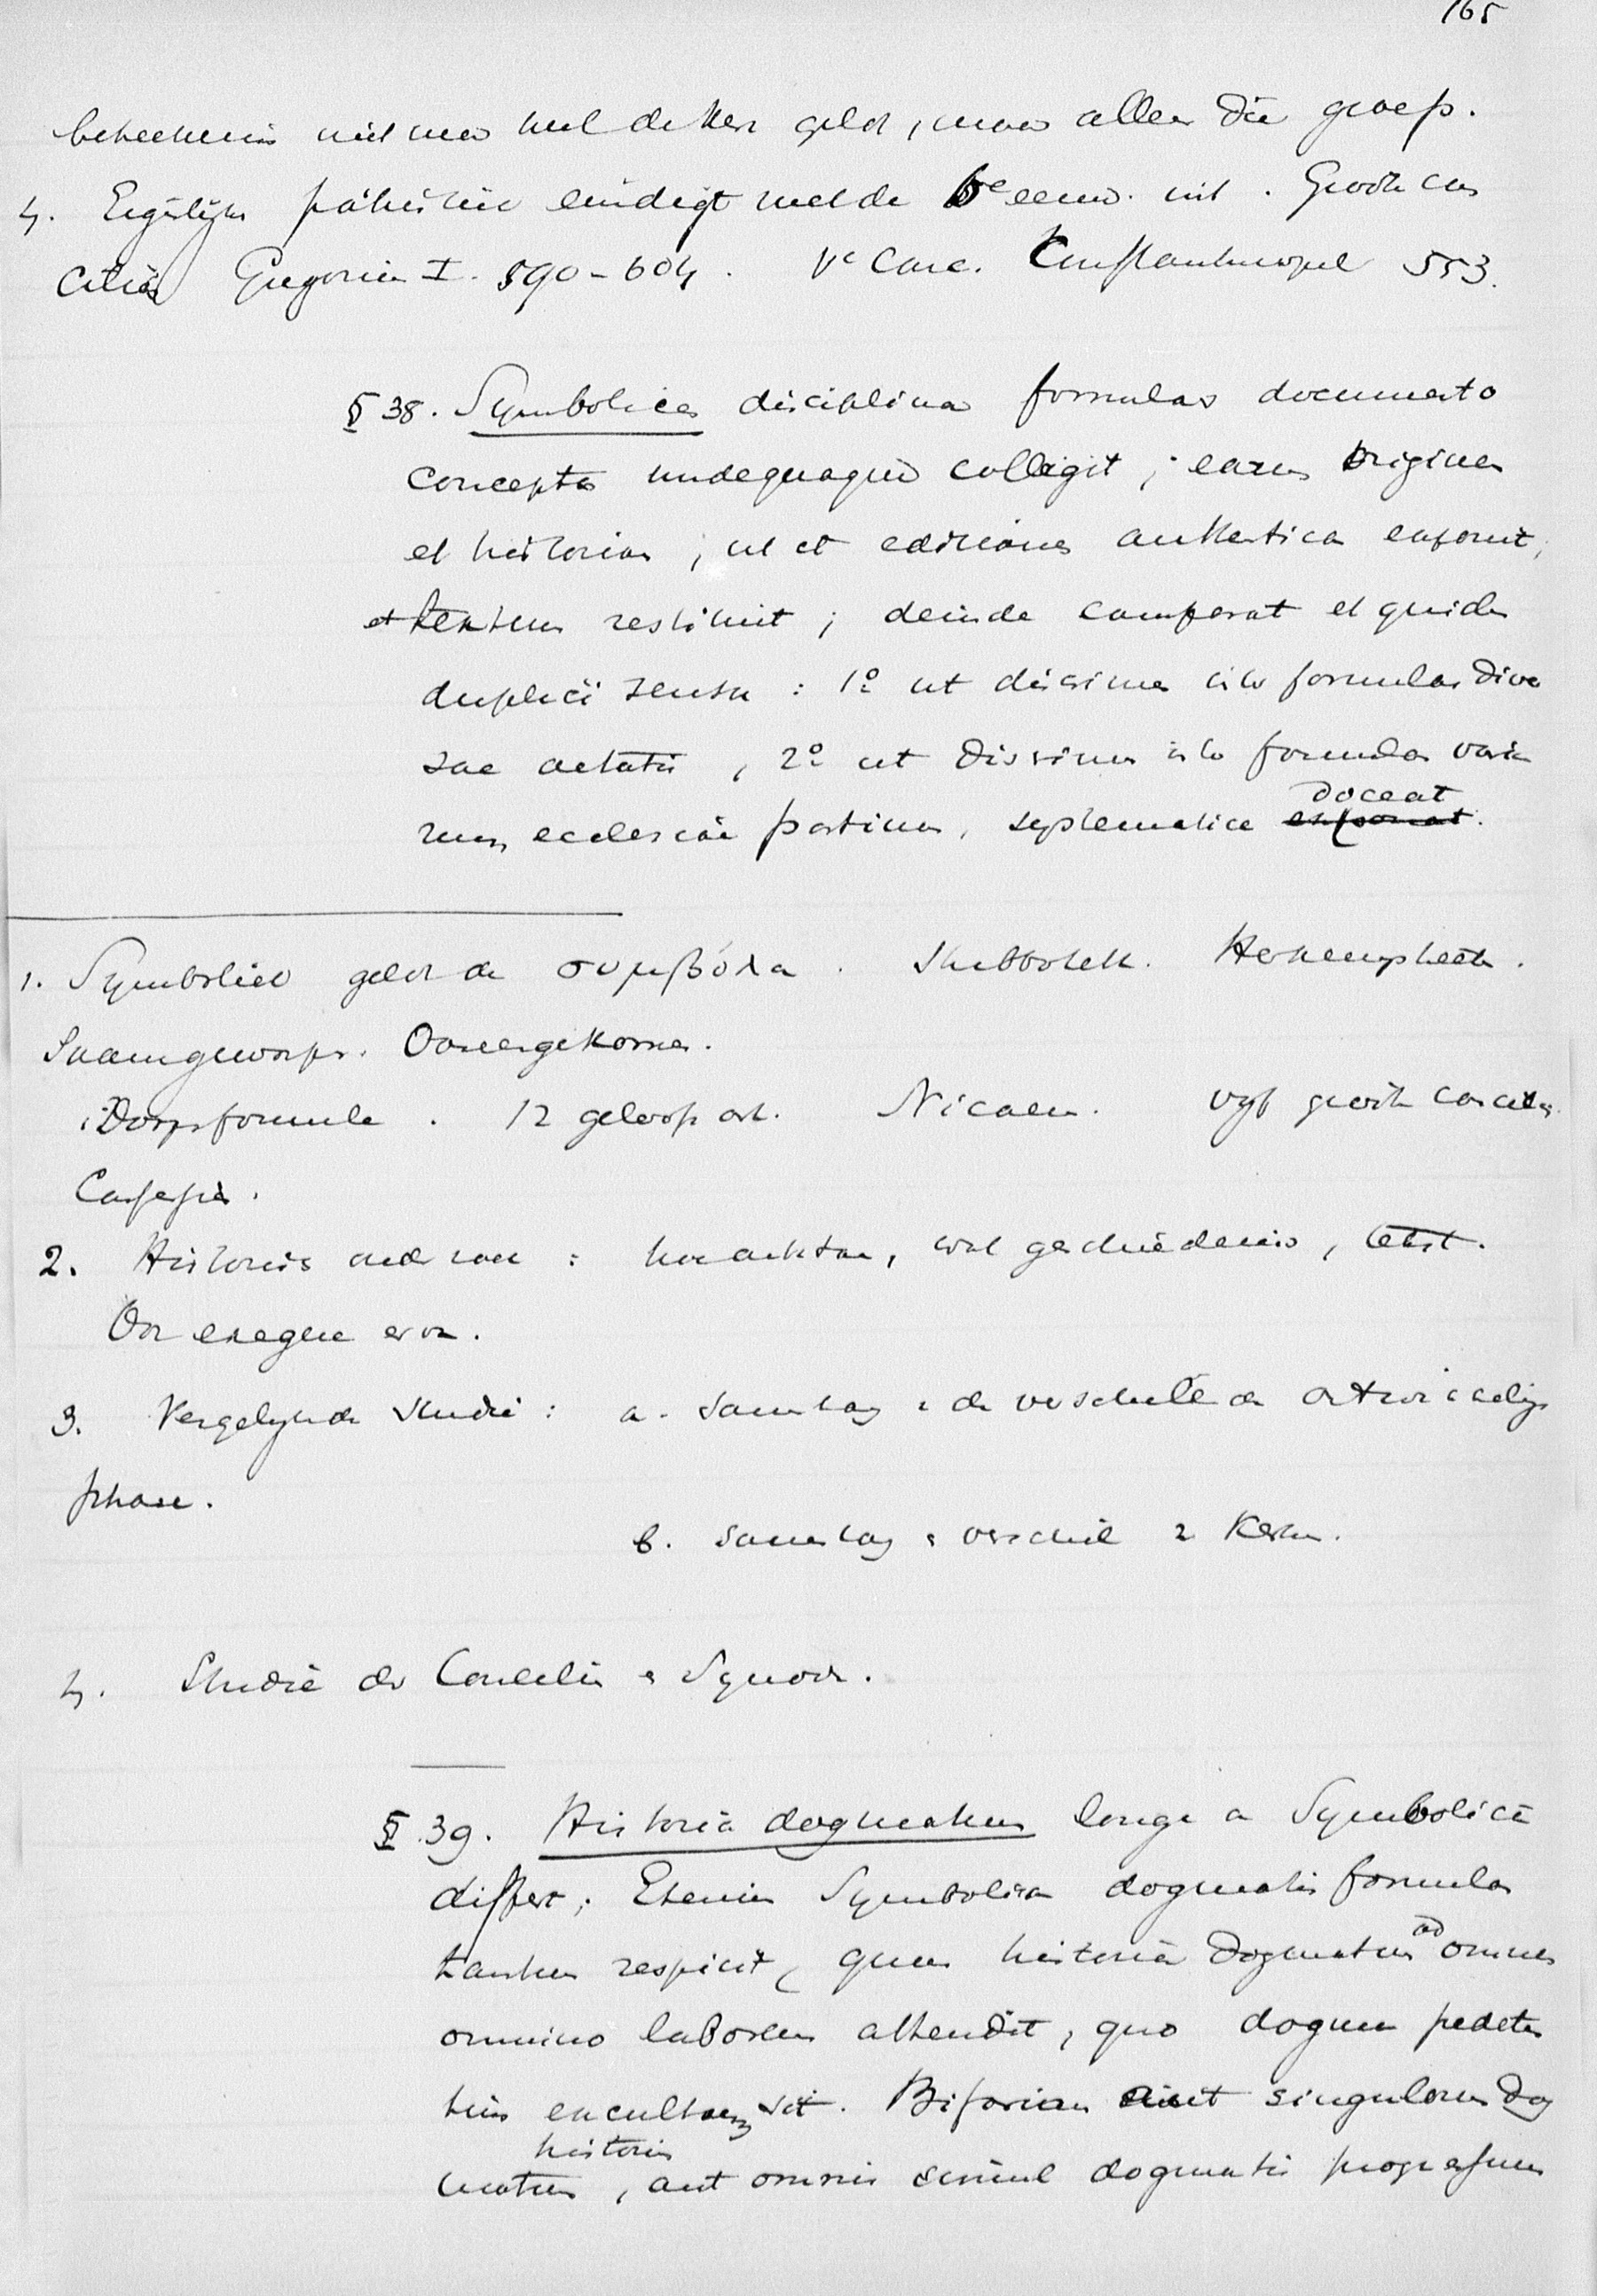 165
beteekenis niet meer heel de Kerk geldt, maar alleen die groep.
4. Eigenlijke patristiek eindigt met de 6e eeuw. uit. Groote con
ciliën Gregorius I. 590-604. Ve Conc. Constantinopel 553.
§ 38. Symbolica disciplina formulas documento
conceptas undequaque colligit; earum originem
et historiam, ut et editiones authenticas exponit,
et textum restituit; deinde comparat et quidem
duplici sensu: 1º ut discrimen inter formulas diver
sae aetatis, 2º ut discrimen inter formulas varia
rum ecclesiae partium, systematice doceat exponat.
1. Symboliek geldt de συμβόλα. Shibboleth. Herkenningsteeken.
Saamgeworpen. Overeengekomen.
Doopsformule. 12 geloofsart. Nicaen. Vijf groote conciliën.
Confessies.
2. Historisch onderzoek: hoe ontstaan, wat geschiedenis, tekst.
Ook exegese ervan.
3. Vergelijkende studie: a. samenhang in de verschillende ontwikkelings
phasen.
b. samenhang en verschil in Kerken.
4. Studie der Conciliën en Synoden.
§ 39. Historia dogmatum longe a Symbolica
differt; Etenim Symbolica dogmatis formulas
tantum respicit, quum historia dogmatum ad omnem
omnino laborem attendit, quo dogma pedeten
tim excultum sit. Bifariam aut singulorum dog
matum historiam, aut omnis simul dogmatis progressum